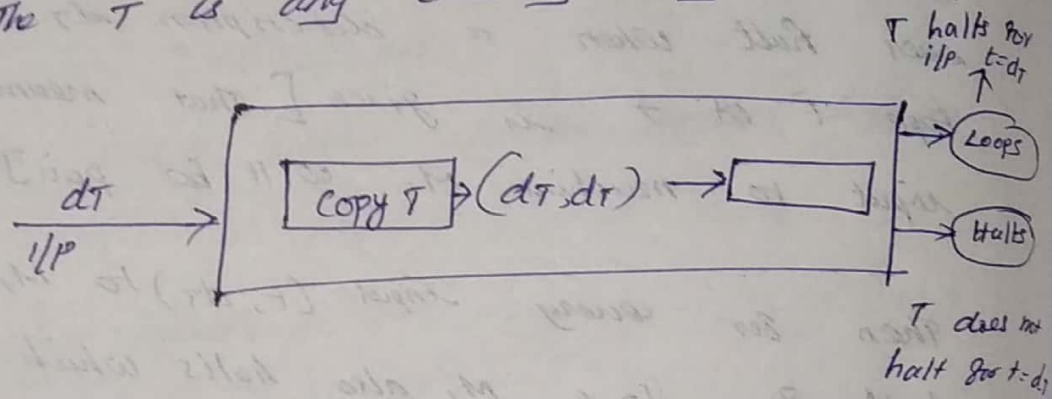 The T is any
T halts for
i/p t=dT
Loops
dT
i/p
Copy T
(dT, dT)
Halts
T does not
halt for t=dT